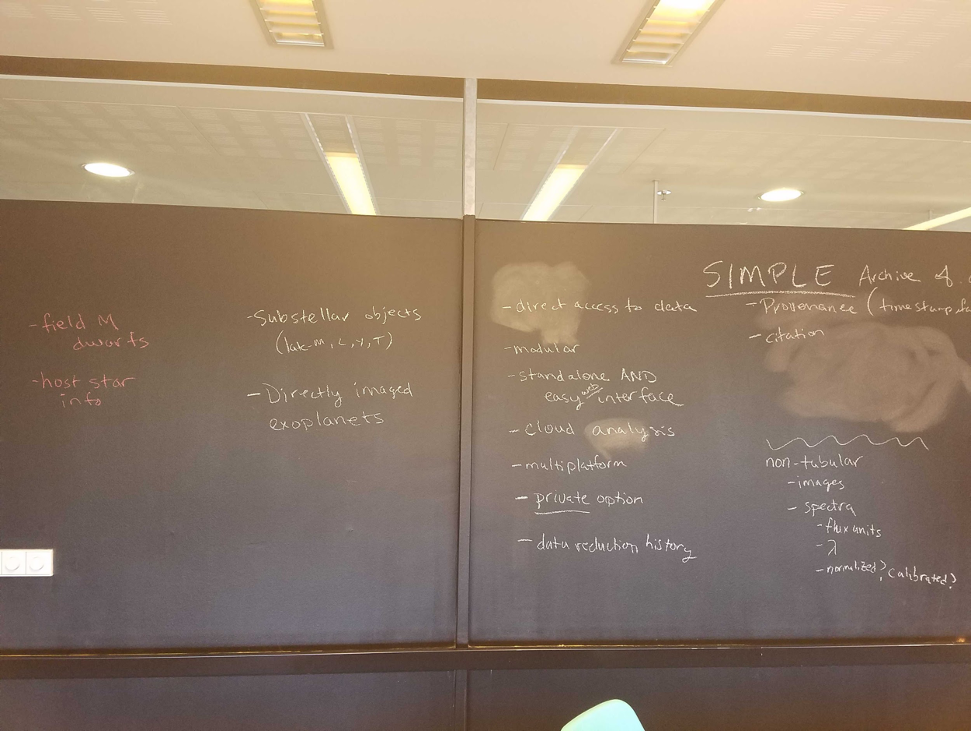 -field M
dwarfs
-host star
info
-Substellar objects
(late-M, L, Y, T)
-Directly imaged
exoplanets
-direct access to data
-modular
-standalone AND
easy web interface
-cloud analysis
-multiplatform
-private option
-data reduction history
SIMPLE Archive of
-Provenance (timestamp,
-citation
non-tabular
-images
-spectra
-flux units
-λ
-normalized?, calibrated?